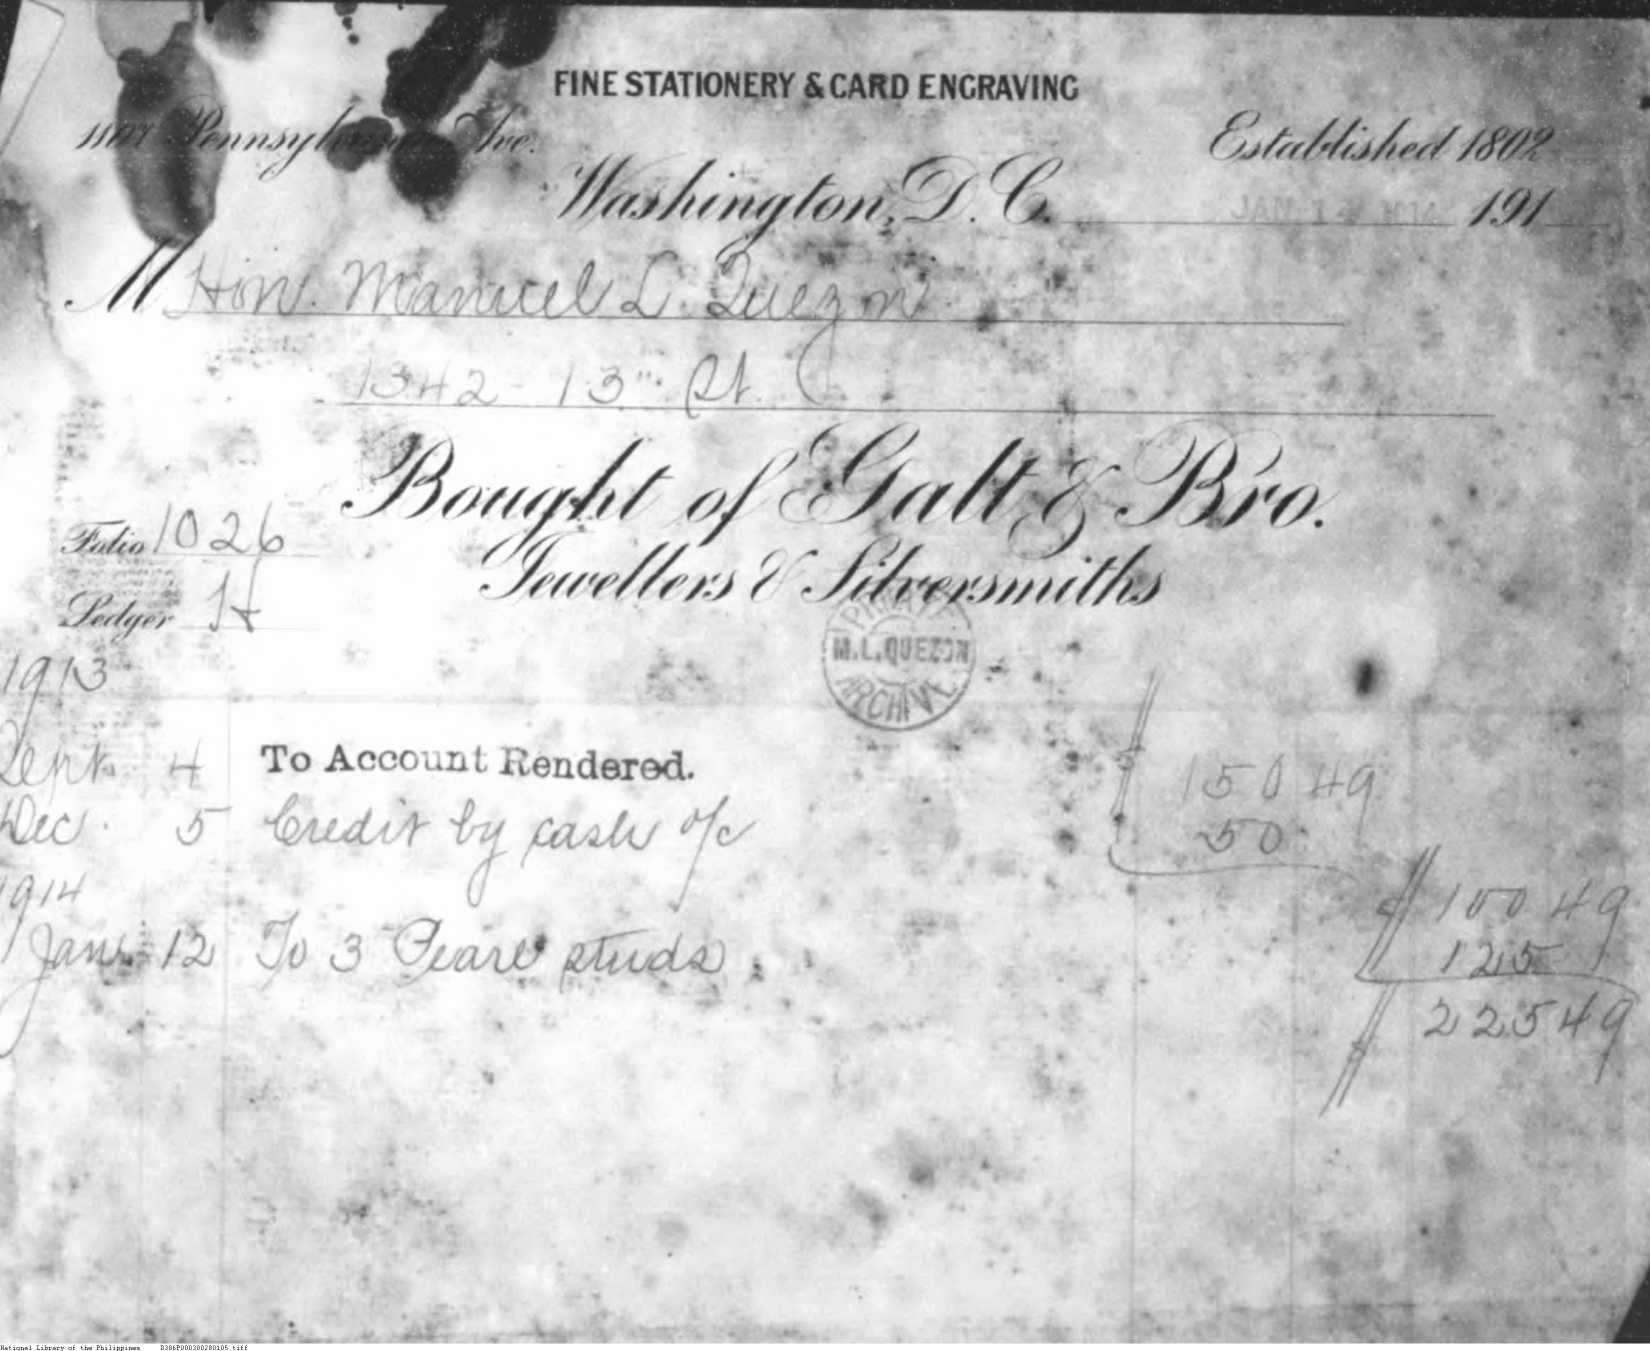 FINE STATIONERY & CARD ENGRAVING
1107 Pennsylvania Ave.
Established 1802
Washington, D.C. 191
M Hon. Manuel L. Quezon
1342 - 13th St.
Bought of Galt & Bro.
Jewellers & Silversmiths
Folio 1026
Ledger H
PRIVATE
M.L.QUEZON
ARCHIVE
1913
Sept. 4 To Account Rendered. $ 150 49
Dec. 5 Credit by cash o/c 50
$ 100 49
1914
Jan. 12 To 3 Pearl studs 125
$ 225 49
National Library of the Philippines D386P000300280105.tiff